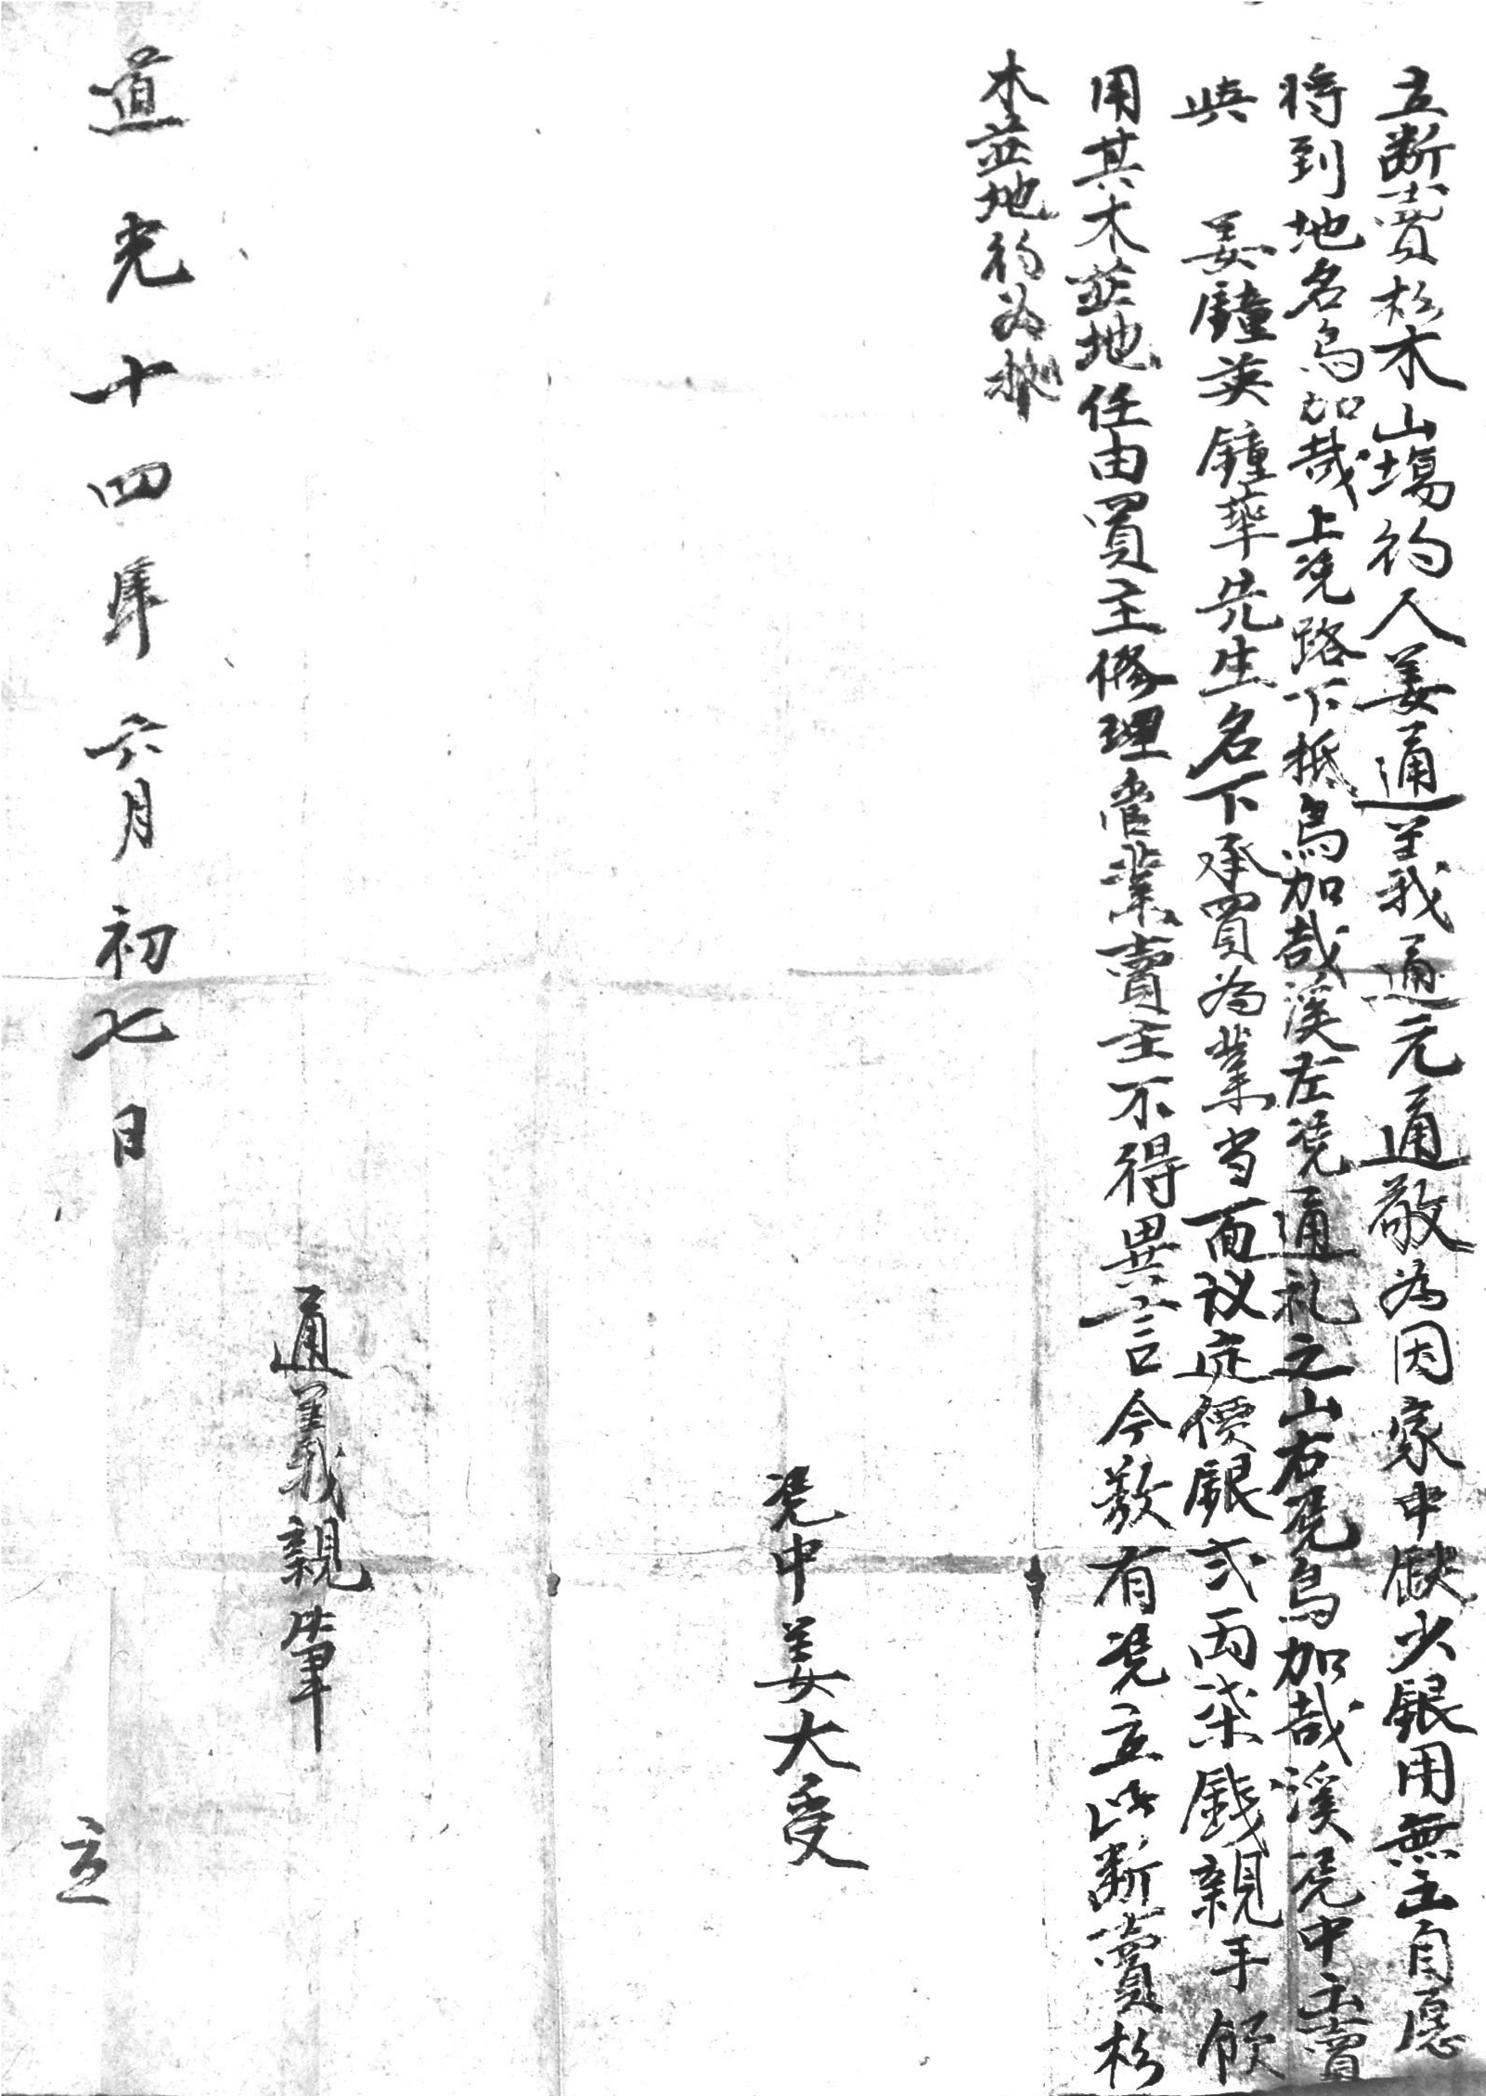 立断賣杉木山塲約人姜通義通元通敬為因家中缺少銀用無出自愿
將到地名烏加哉上凴路下抵烏加哉溪左凴通礼之山右凴烏加哉溪凴中出賣
與　姜鐘英鐘華先生名下承買為業当面议定價銀弍両柒錢親手領
用其木並地任由買主修理管業賣主不得異言今欲有凴立此断賣杉
木並地約為據
凴中姜大受
通義親筆
道光十四年六月初七日　立